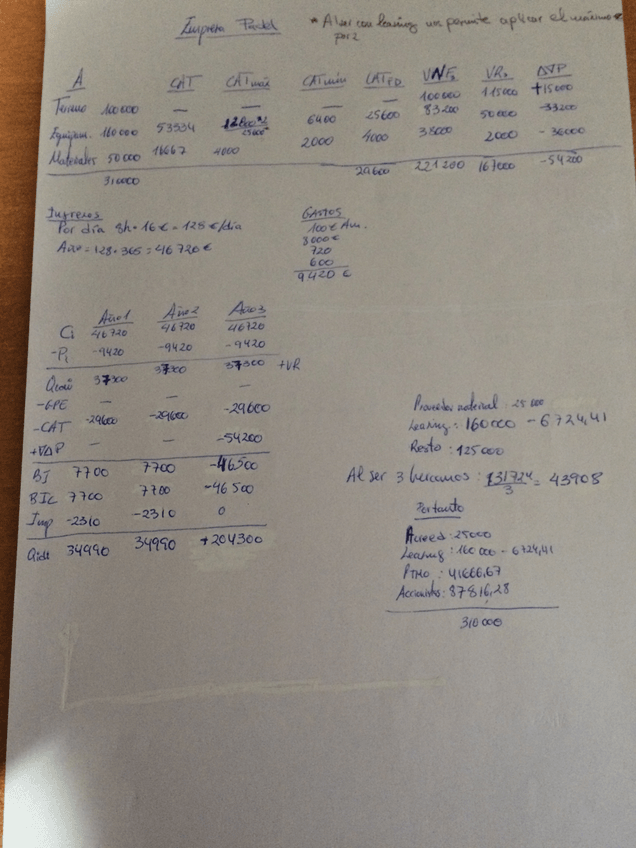 Empresa Pádel
* Al ser con leasing nos permite aplicar el máximo x
por 2
A CAT CATmáx CATmín CATPD VNF3 VR3 ΔVP
Terreno 100000 — — — — 100000 115000 +15000
Equipam. 160000 53334 12800*2 25600 6400 25600 83200 50000 -33200
Materiales 50000 16667 4000 2000 4000 38000 2000 -36000
310000 29600 221200 167000 -54200
Ingresos
Por día 8h · 16€ = 128€/día
Año = 128 · 365 = 46720€
GASTOS
100€ Am.
8000€
720
600
9420€
Año1 Año2 Año3
Ci 46720 46720 46720
-Pi -9420 -9420 -9420
37300 37300 37300 +VR
-GPE — — —
-CAT -29600 -29600 -29600
+VΔP — — -54200
BI 7700 7700 -46500
BIL 7700 7700 -46500
Imp -2310 -2310 0
Qidt 34990 34990 +204300
Proveedor material: 25000
Leasing: 160000 - 6724,41
Resto: 125000
Al ser 3 hermanos: 131724/3 = 43908
Por tanto
Acreed: 25000
Leasing: 160000 - 6724,41
PTMO: 41666,67
Accionistas: 87816,28
310000